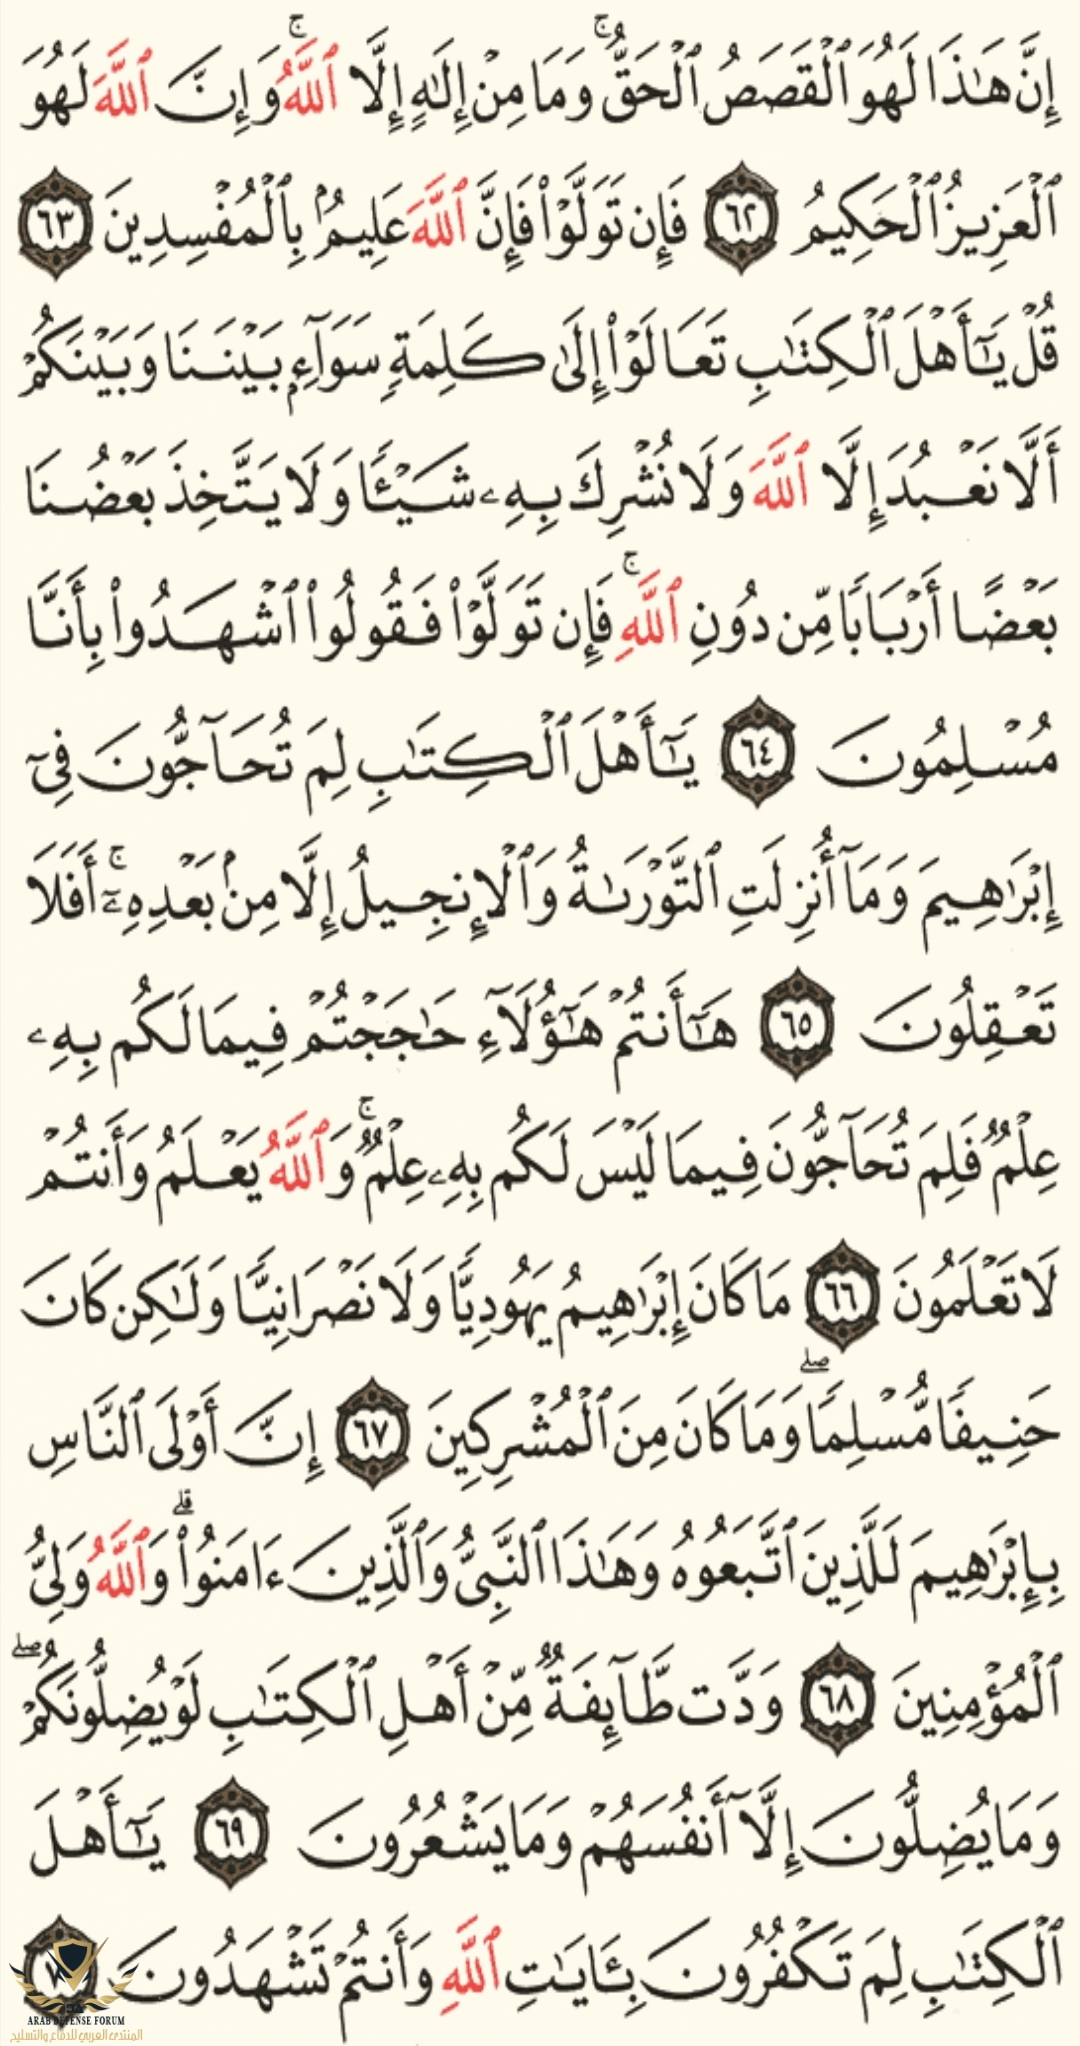 إِنَّ هَٰذَا لَهُوَ ٱلْقَصَصُ ٱلْحَقُّۚ وَمَا مِنْ إِلَٰهٍ إِلَّا ٱللَّهُۚ وَإِنَّ ٱللَّهَ لَهُوَ
ٱلْعَزِيزُ ٱلْحَكِيمُ ٦٢ فَإِن تَوَلَّوْا۟ فَإِنَّ ٱللَّهَ عَلِيمُۢ بِٱلْمُفْسِدِينَ ٦٣
قُلْ يَٰٓأَهْلَ ٱلْكِتَٰبِ تَعَالَوْا۟ إِلَىٰ كَلِمَةٍ سَوَآءِۭ بَيْنَنَا وَبَيْنَكُمْ
أَلَّا نَعْبُدَ إِلَّا ٱللَّهَ وَلَا نُشْرِكَ بِهِۦ شَيْـًٔا وَلَا يَتَّخِذَ بَعْضُنَا
بَعْضًا أَرْبَابًا مِّن دُونِ ٱللَّهِۚ فَإِن تَوَلَّوْا۟ فَقُولُوا۟ ٱشْهَدُوا۟ بِأَنَّا
مُسْلِمُونَ ٦٤ يَٰٓأَهْلَ ٱلْكِتَٰبِ لِمَ تُحَآجُّونَ فِىٓ
إِبْرَٰهِيمَ وَمَآ أُنزِلَتِ ٱلتَّوْرَىٰةُ وَٱلْإِنجِيلُ إِلَّا مِنۢ بَعْدِهِۦٓۚ أَفَلَا
تَعْقِلُونَ ٦٥ هَٰٓأَنتُمْ هَٰٓؤُلَآءِ حَٰجَجْتُمْ فِيمَا لَكُم بِهِۦ
عِلْمٌ فَلِمَ تُحَآجُّونَ فِيمَا لَيْسَ لَكُم بِهِۦ عِلْمٌۚ وَٱللَّهُ يَعْلَمُ وَأَنتُمْ
لَا تَعْلَمُونَ ٦٦ مَا كَانَ إِبْرَٰهِيمُ يَهُودِيًّا وَلَا نَصْرَانِيًّا وَلَٰكِن كَانَ
حَنِيفًا مُّسْلِمًاۖ وَمَا كَانَ مِنَ ٱلْمُشْرِكِينَ ٦٧ إِنَّ أَوْلَى ٱلنَّاسِ
بِإِبْرَٰهِيمَ لَلَّذِينَ ٱتَّبَعُوهُ وَهَٰذَا ٱلنَّبِىُّ وَٱلَّذِينَ ءَامَنُوا۟ۗ وَٱللَّهُ وَلِىُّ
ٱلْمُؤْمِنِينَ ٦٨ وَدَّت طَّآئِفَةٌ مِّنْ أَهْلِ ٱلْكِتَٰبِ لَوْ يُضِلُّونَكُمْۖ
وَمَا يُضِلُّونَ إِلَّآ أَنفُسَهُمْ وَمَا يَشْعُرُونَ ٦٩ يَٰٓأَهْلَ
ٱلْكِتَٰبِ لِمَ تَكْفُرُونَ بِـَٔايَٰتِ ٱللَّهِ وَأَنتُمْ تَشْهَدُونَ
ARAB DEFENSE FORUM
المنتدى العربي للدفاع والتسليح